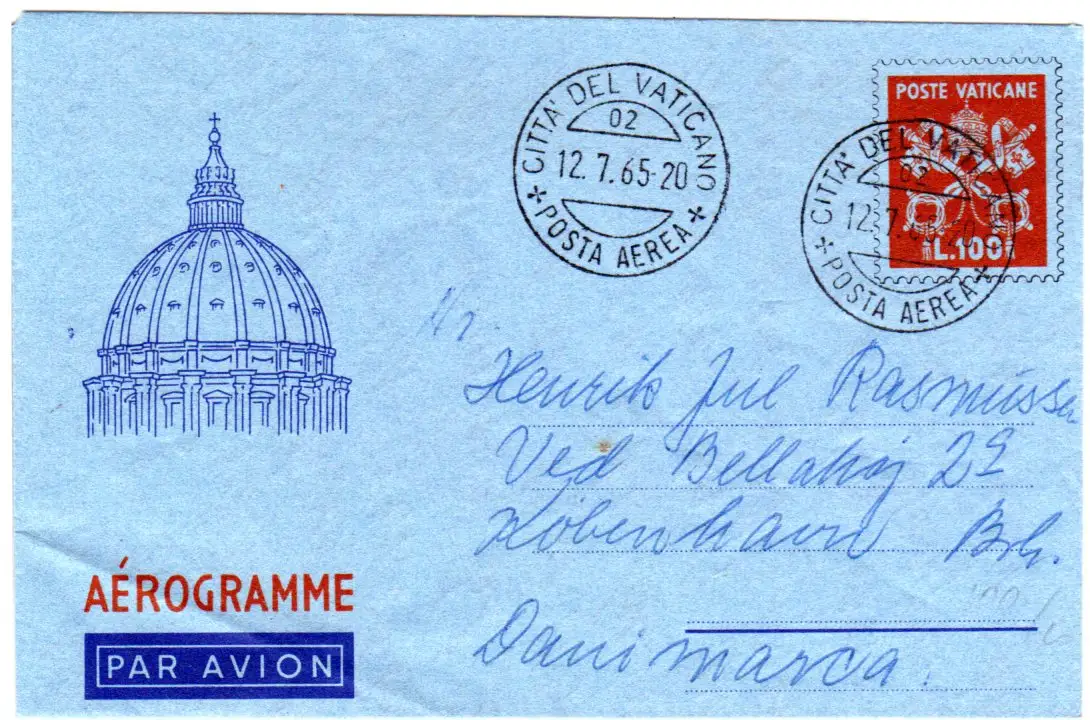 POSTE VATICANE
L.100
CITTA' DEL VATICANO
02
12.7.65-20
POSTA AEREA
CITTA' DEL VATICANO
02
12.7.65-20
POSTA AEREA
Hr.
Henrik Jul Rasmussen
Ved Bellahøj
København Brh.
Danimarca.
AÉROGRAMME
PAR AVION